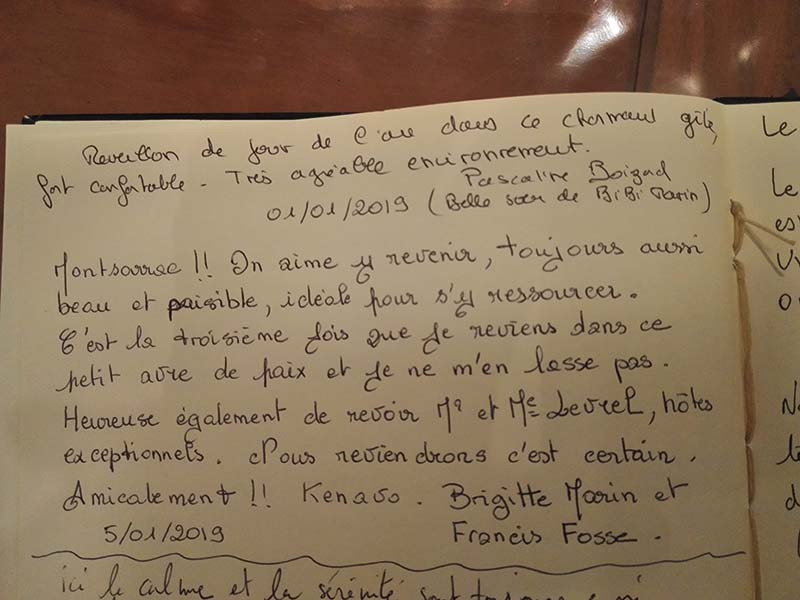 Reveillon de jour de l'an dans ce charmant gîte,
fort confortable - Très agréable environnement.
Pascaline Boizard
01/01/2019 (Belle sœur de BiBi Marin)
Montsarrac !! On aime y revenir, toujours aussi
beau et paisible, idéale pour s'y ressourcer.
C'est la troisième fois que je reviens dans ce
petit avre de paix et je ne m'en lasse pas.
Heureuse également de revoir Mr et Me Levrel, hôtes
exceptionnels. Nous reviendrons c'est certain.
Amicalement !! Kenavo. Brigitte Marin et
5/01/2019 Francis Fosse.
ici le calme et la sérénité sont
Le
Le